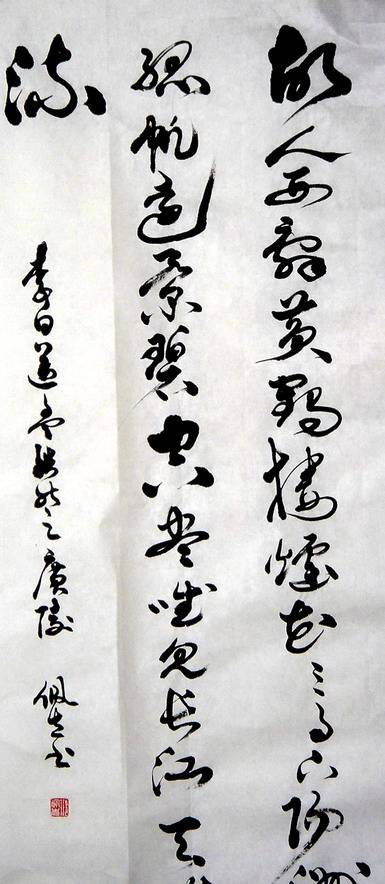 故人西辭黃鶴樓煙花三月下揚州
孤帆遠景碧空盡唯見長江天
流
李白送孟浩然之廣陵 佩書